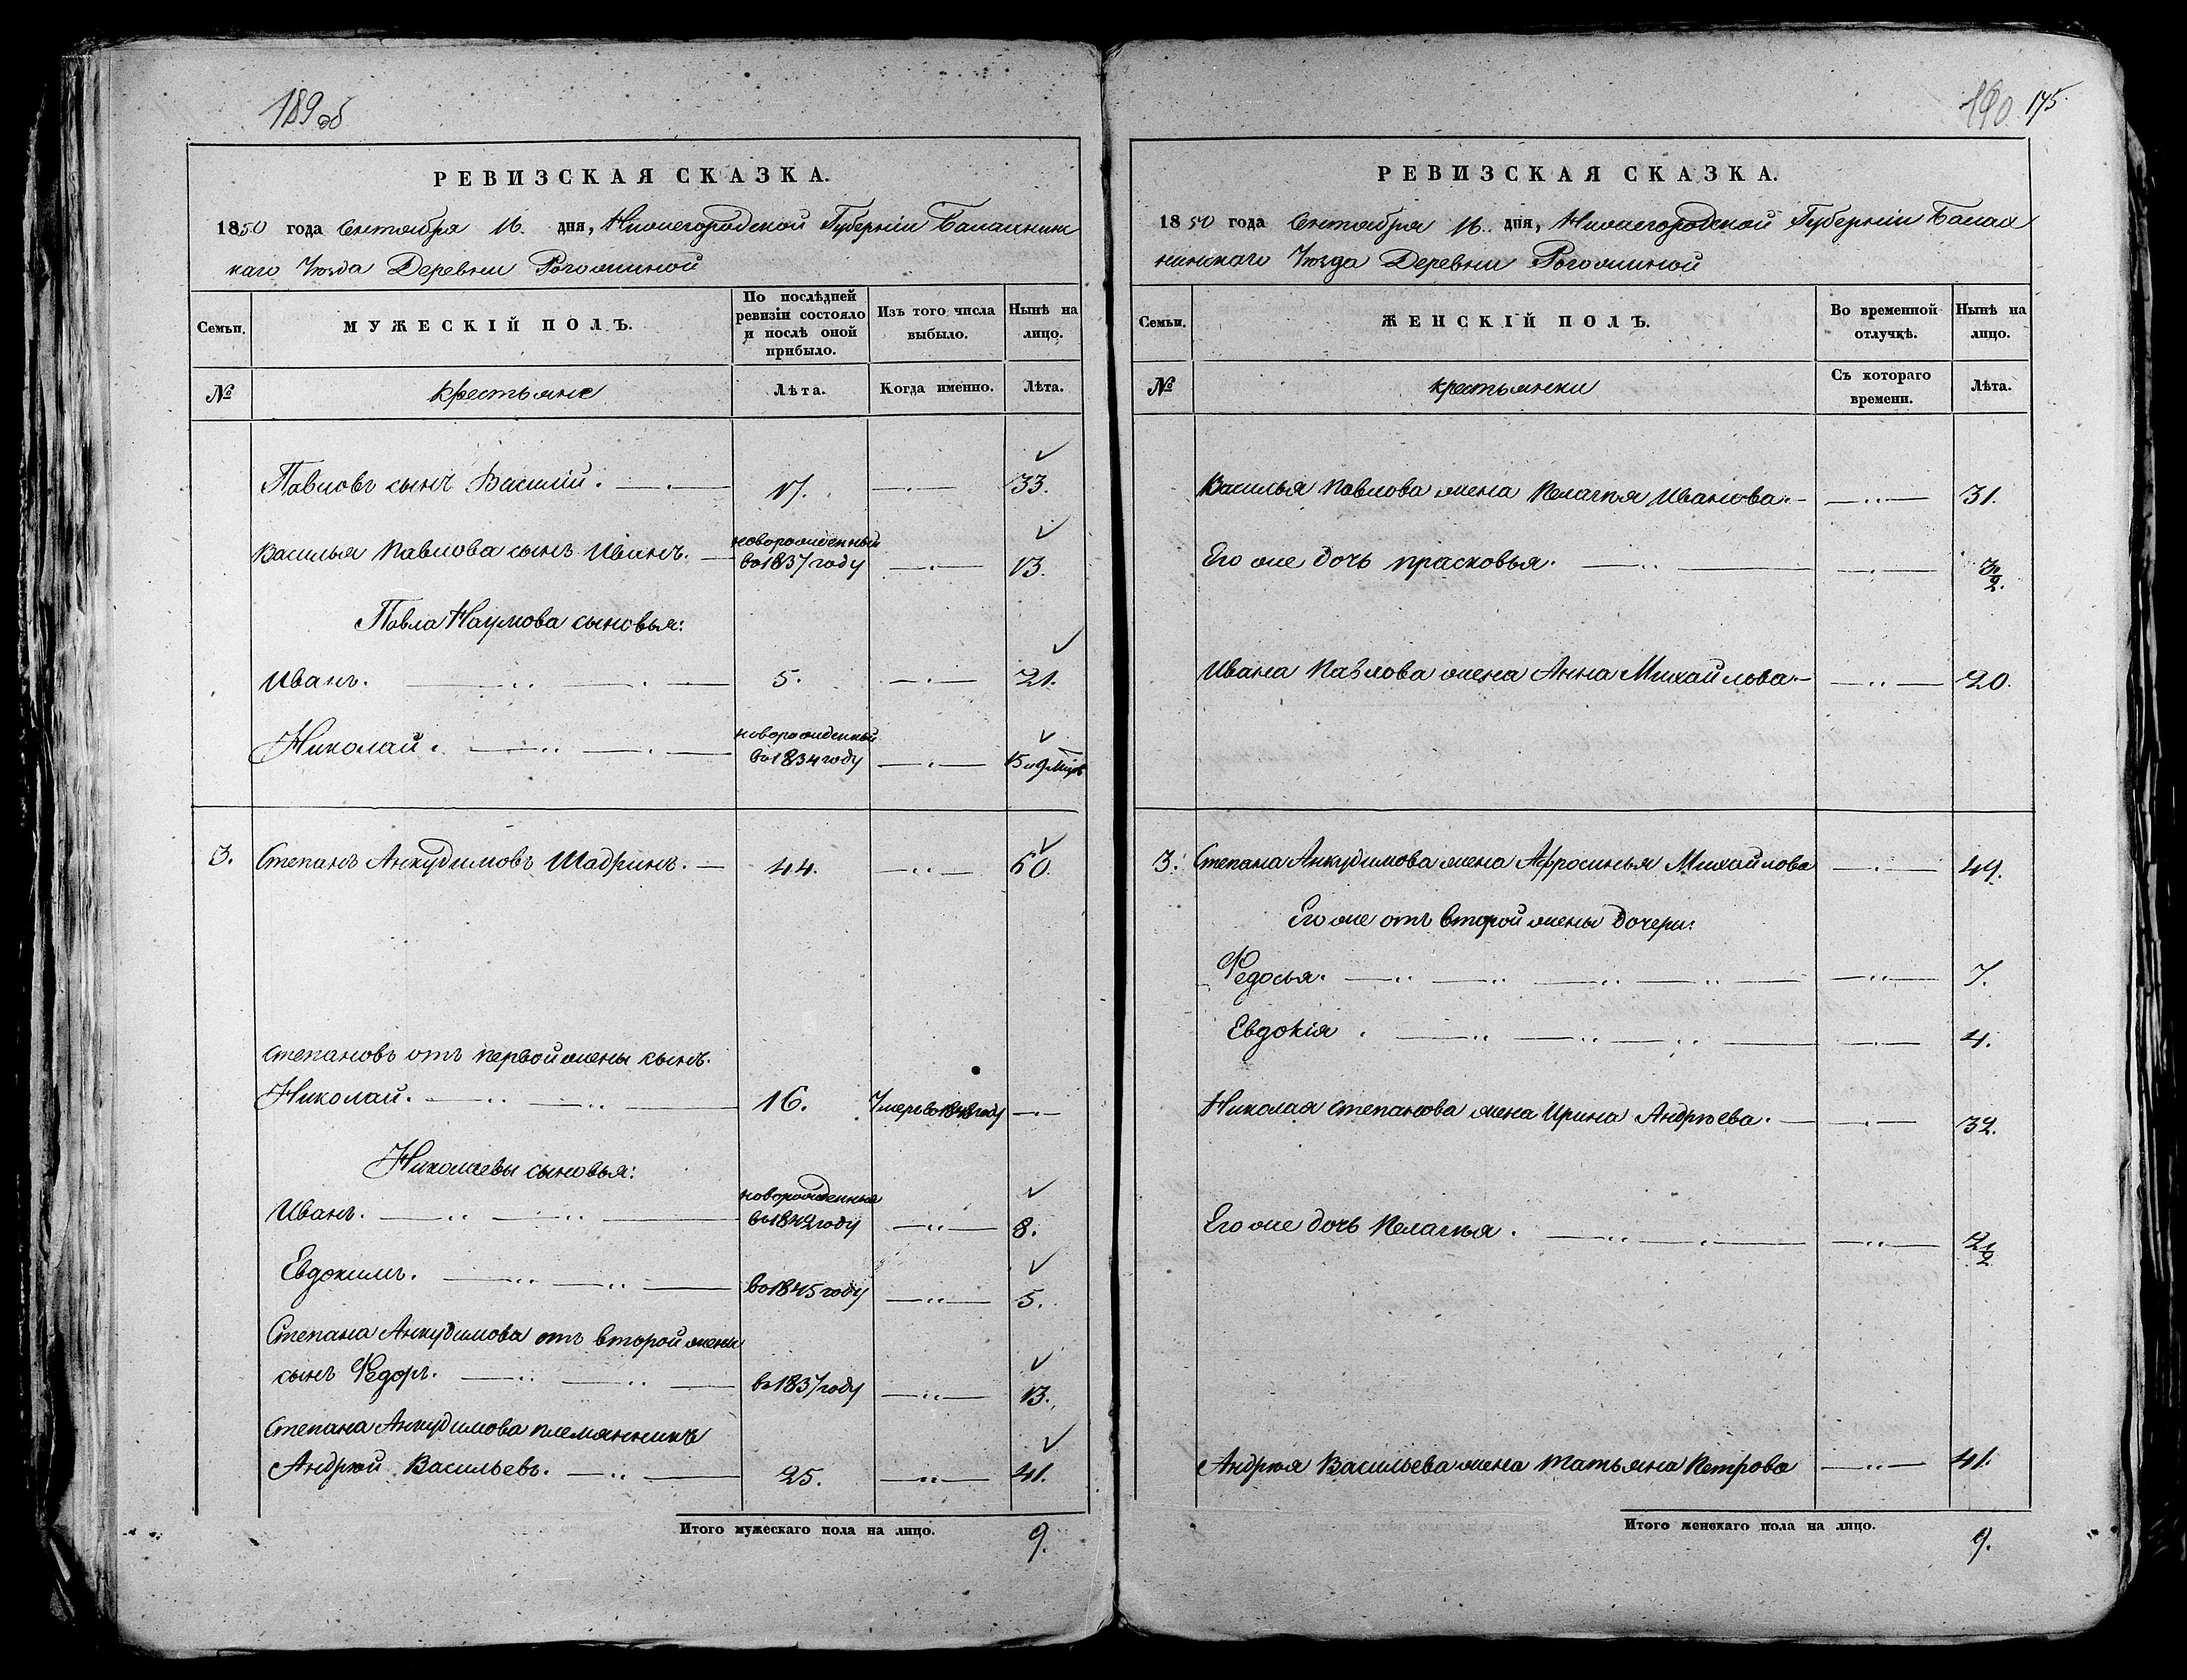 189 об
РЕВИЗСКАЯ СКАЗКА.
1850 года Сентября 16. дня, Нижегородской Губерніи Балахнинс
каго Уѣзда Деревни Рогожиной
Семьи.
МУЖЕСКІЙ ПОЛЪ.
По послѣдней ревизіи состояло и послѣ оной прибыло.
Изъ того числа выбыло.
Нынѣ на лицо.
№ крестьяне Лѣта. Когда именно. Лѣта.
Павловъ сынъ Василій. 17. 33.
Василья Павлова сынъ Иванъ. новорожденный во 1837 году 13.
Павла Наумова сыновья:
Иванъ. 5. 21.
Николай. новорожденной во 1834 году 15 и 9 мцъ
3. Степанъ Анкудимовъ Шадринъ. 44. 60.
Степановъ отъ первой жены сынъ.
Николай. 16. Умеръ во 1848 году
Николаевы сыновья:
Иванъ. новорожденные во 1842 году 8.
Евдокимъ. во 1845 году 5.
Степана Анкудимова отъ второй жены
сынъ Федоръ. въ 1837 году 13.
Степана Анкудимова племянникъ
Андрѣй Васильевъ. 25. 41.
Итого мужескаго пола на лицо. 9.
190 175.
РЕВИЗСКАЯ СКАЗКА.
1850 года Сентября 16. дня, Нижегородской Губерніи Балах
нинскаго Уѣзда Деревни Рогожиной
Семьи.
ЖЕНСКІЙ ПОЛЪ.
Во временной отлучкѣ.
Нынѣ на лицо.
№ крестьянки Съ котораго времени. Лѣта.
Василья Павлова жена Пелагѣя Иванова. 31.
Его же дочь Прасковья. 3½.
Ивана Павлова жена Анна Михайлова 20.
3. Степана Анкудимова жена Афросинья Михайлова 49.
Его же отъ второй жены дочери:
Федосья. 7.
Евдокія. 4.
Николая Степанова жена Ирина Андрѣева. 32.
Его же дочь Пелагѣя. 2½
Андрѣя Васильева жена Татьяна Петрова 41.
Итого женскаго пола на лицо. 9.